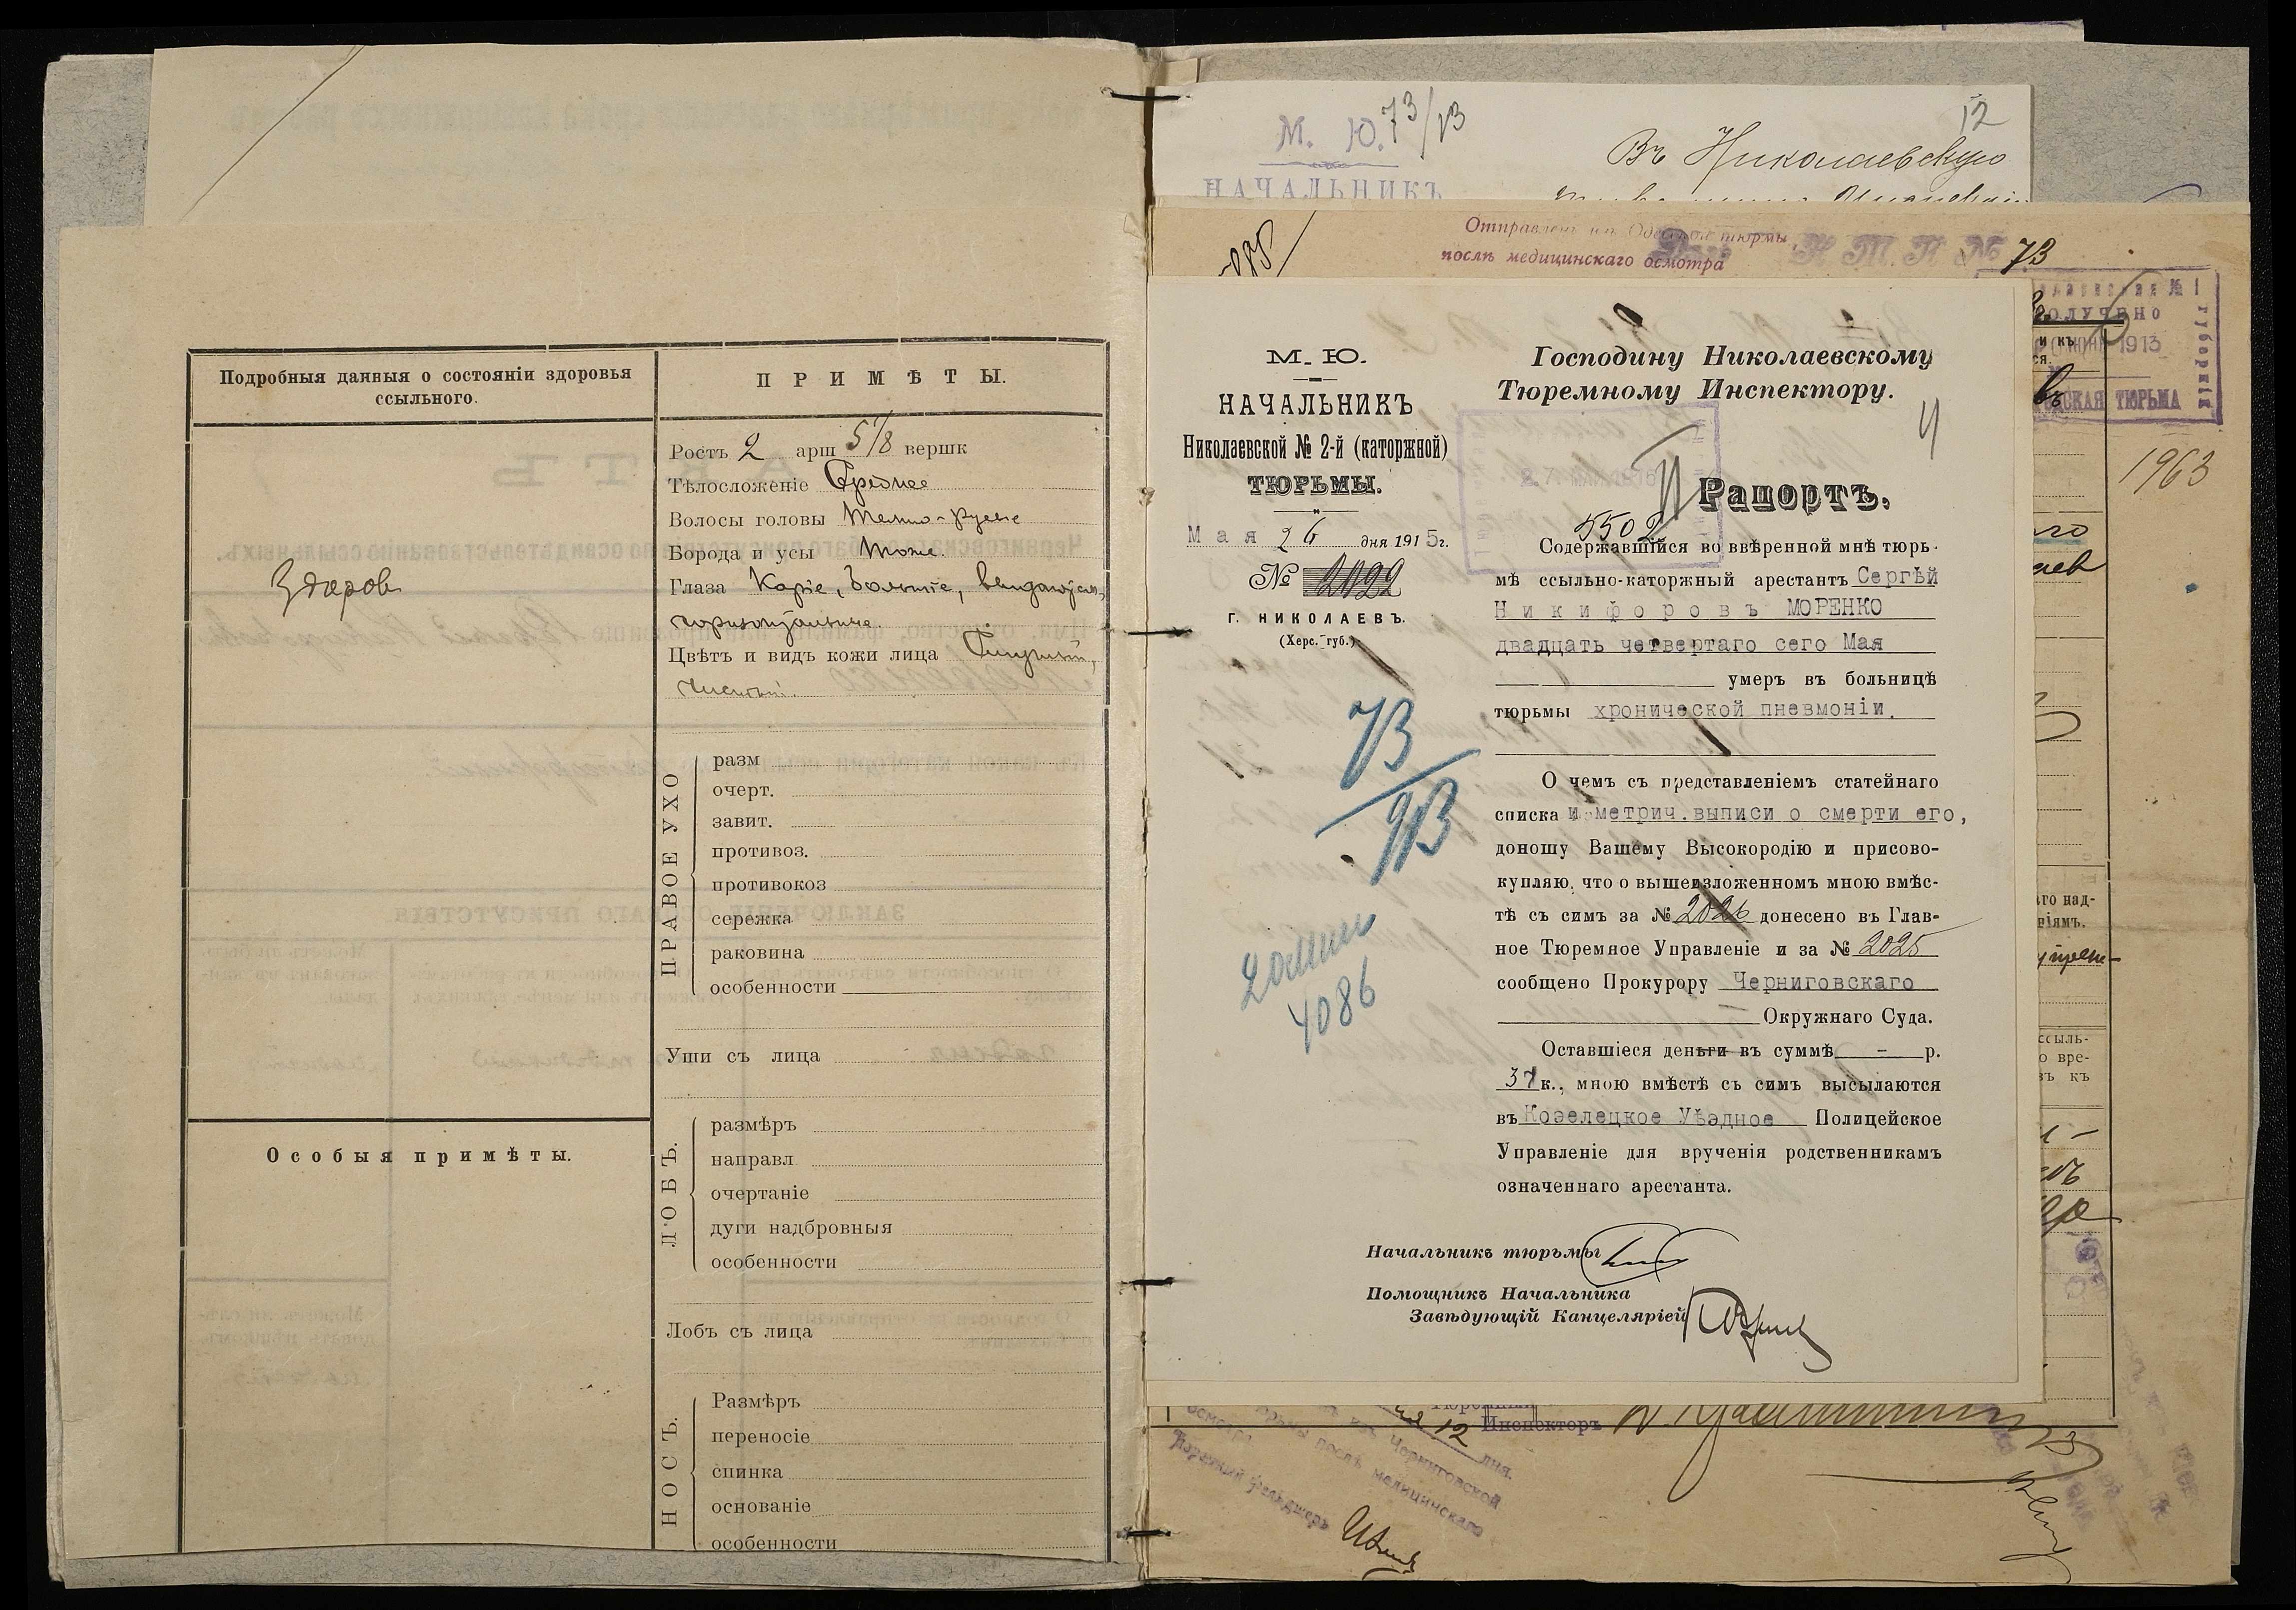 Подробныя данныя о состоянiи здоровья
ссыльного.
Здоров
Особыя примѣты.
ПРИМѢТЫ.
Ростъ 2 арш 5 1/8 вершк
Тѣлосложенiе Среднее
Волосы головы Темно-русые
Борода и усы Тоже.
Глаза Карiе, большiе,
горизонтальные.
Цвѣтъ и видъ кожи лица
чистый.
ПРАВОЕ УХО
разм
очерт.
завит.
противоз.
противокоз
сережка
раковина
особенности
Уши съ лица
ЛОБЪ.
размѣръ
направл
очертанiе
дуги надбровныя
особенности
Лобъ съ лица
НОСЪ.
Размѣръ
переносiе
спинка
основанiе
особенности
М. Ю. 73/13
НАЧАЛЬНИКЪ
12
Въ Николаевскую
Отправленъ изъ Одесской тюрьмы
послѣ медицинскаго осмотра
Н Т П № 73
ПОЛУЧЕНО
1913
ТЮРЬМА
1963
М. Ю.
НАЧАЛЬНИКЪ
Николаевской № 2-й (каторжной)
ТЮРЬМЫ.
Мая 26 дня 1915г.
№ 2022
Г. НИКОЛАЕВЪ.
(Херс. губ.)
73
913
4086
Господину Николаевскому
Тюремному Инспектору.
Рапортъ.
5502
Содержавшiйся во ввѣренной мнѣ тюрь-
мѣ ссыльно-каторжный арестантъ Сергѣй
Никифоровъ МОРЕНКО
двадцать четвертаго сего Мая
умеръ въ больницѣ
тюрьмы хронической пневмонiи.
О чемъ съ представленiемъ статейнаго
списка и метрич.выписи о смерти его,
доношу Вашему Высокородiю и присово-
купляю, что о вышеизложенномъ мною вмѣс-
тѣ съ симъ за № 2026 донесено въ Глав-
ное Тюремное Управленiе и за № 2025
сообщено Прокурору Черниговскаго
Окружнаго Суда.
Оставшiеся деньги въ суммѣ - р.
37 к., мною вмѣстѣ съ симъ высылаются
въ Козелецкое Уѣздное Полицейское
Управленiе для врученiя родственникамъ
означеннаго арестанта.
Начальникъ тюрьмы
Помощникъ Начальника
Завѣдующiй Канцелярiей
12 дня.
Инспекторъ
въ Черниговской
послѣ медицинскаго
осмотра
фельдшеръ